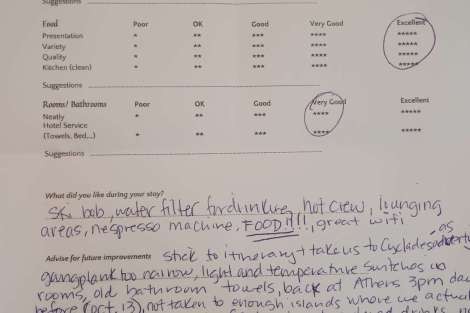 Suggestions
Food Poor OK Good Very Good Excellent
Presentation * ** *** **** *****
Variety * ** *** **** *****
Quality * ** *** **** *****
Kitchen (clean) * ** *** **** *****
Suggestions
Rooms/ Bathrooms Poor OK Good Very Good Excellent
Neatly * ** *** **** *****
Hotel Service
(Towels, Bed,...) * ** *** **** *****
Suggestions
What did you like during your stay?
bob, water filter for drinking, hot crew, lounging
areas, nespresso machine, FOOD!!!!, great wifi
Advise for future improvements stick to itinerary + take us to Cyclades as
gangplank too narrow, light and temperature switches
rooms, old bathroom towels, back at Athens 3pm day
before (oct. 13), not taken to enough islands where we actual